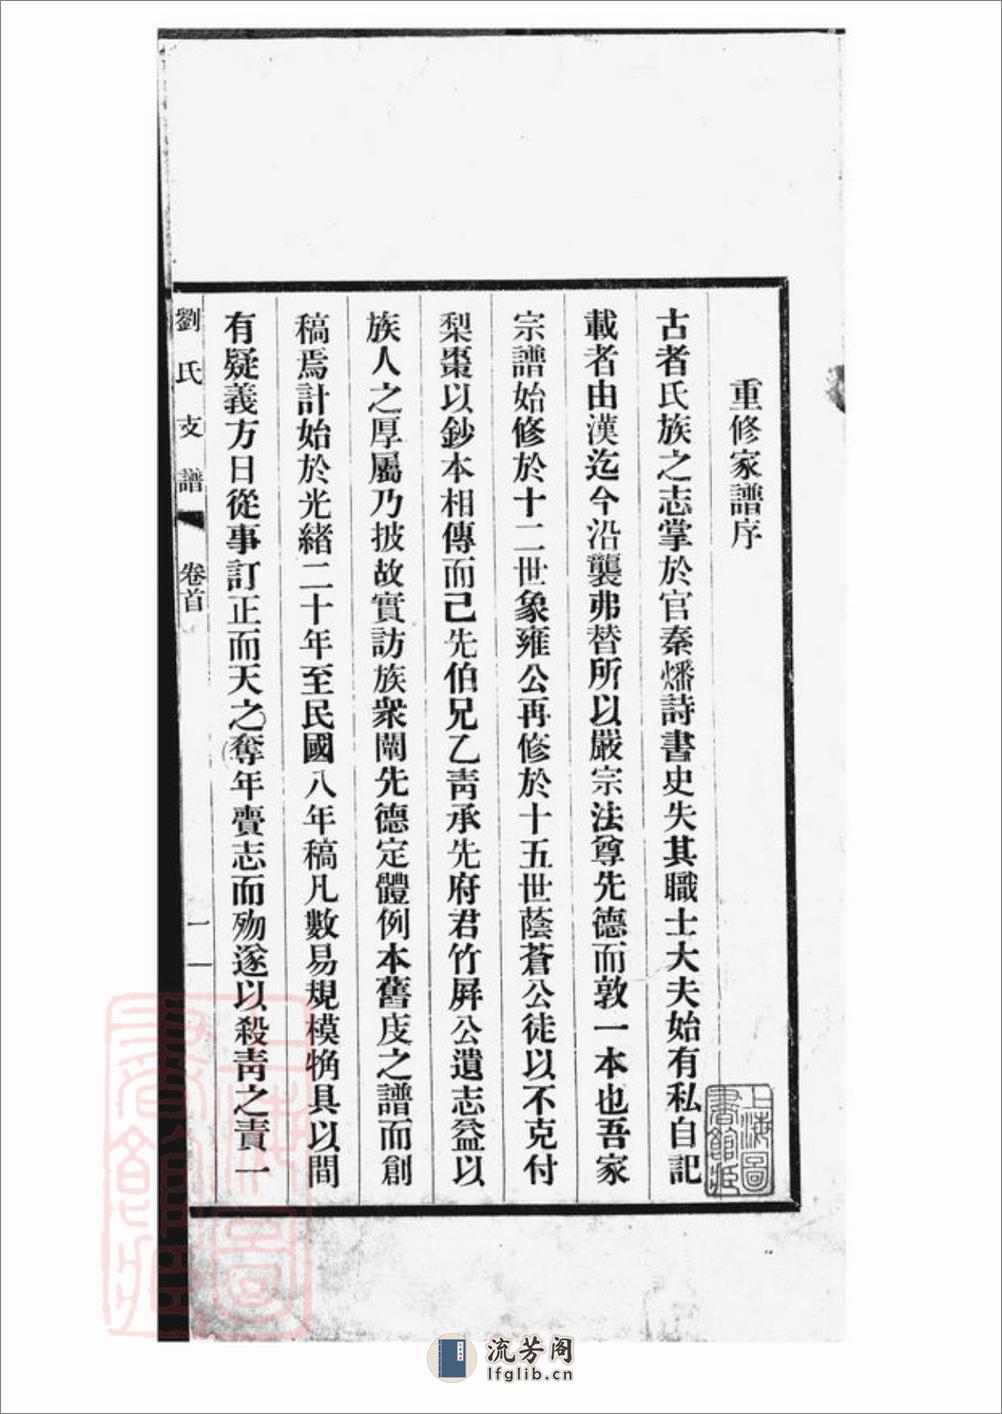 重修家譜序
古者氏族之志掌於官秦燔詩書史失其職士大夫始有私自記
載者由漢迄今沿襲弗替所以嚴宗法尊先德而敦一本也吾家
宗譜始修於十二世象雍公再修於十五世蔭蒼公徒以不克付
梨棗以鈔本相傳而已先伯兄乙靑承先府君竹屏公遺志益以
族人之厚屬乃披故實訪族衆闡先德定體例本舊庋之譜而創
稿焉計始於光緒二十年至民國八年稿凡數易規模觕具以間
有疑義方日從事訂正而天之奪年賫志而歾遂以殺靑之責一
劉氏支譜
卷首
一
上海圖書館藏
上海圖書館藏
流芳阁
lfglib.cn